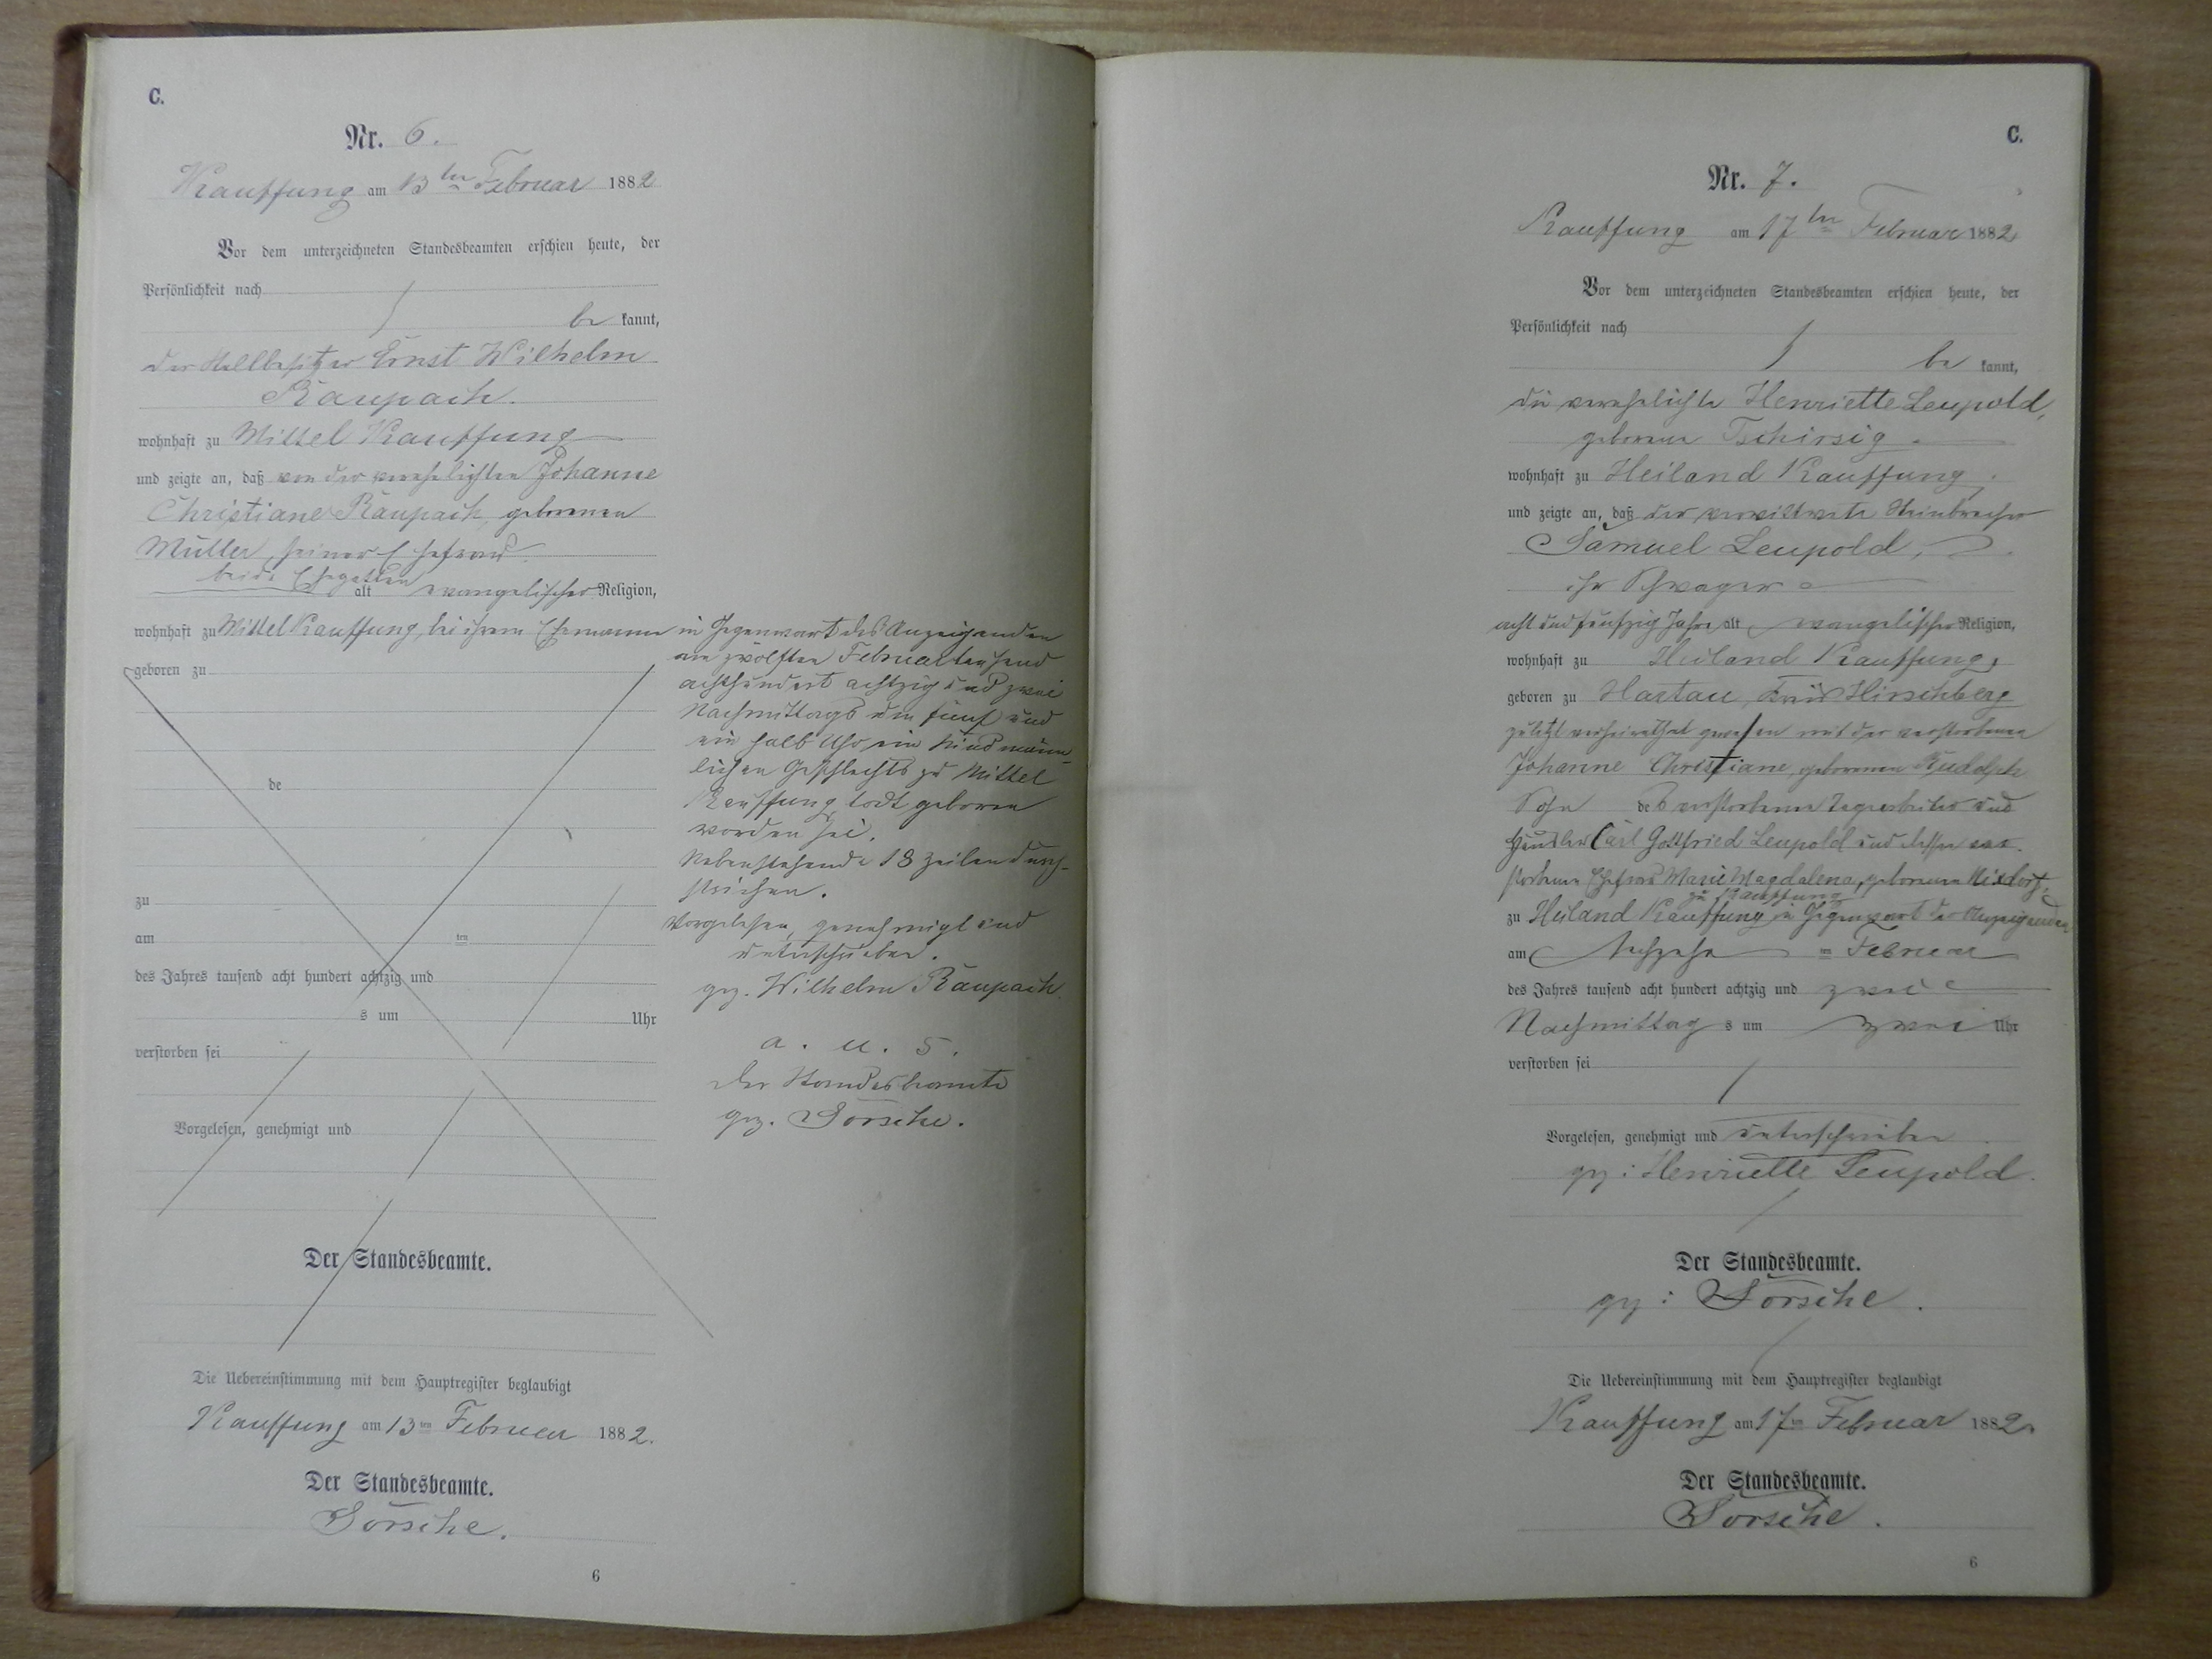 C.
Nr. 6.
Kauffung am 13ten Februar 1882
Vor dem unterzeichneten Standesbeamten erschien heute, der
Persönlichkeit nach
be kannt,
der Stellbesitzer Ernst Wilhelm
Raupach.
wohnhaft zu Mittel Kauffung
und zeigte an, daß von der verehelichten Johanne
Christiane Raupach, geborenen
Müller, seiner Ehefrau
beide Ehegatten
alt evangelischer Religion,
wohnhaft zu Mittel Kauffung, bei ihrem Ehemanne
geboren zu
de
zu
am ten
des Jahres tausend acht hundert achtzig und
s um Uhr
verstorben sei
Vorgelesen, genehmigt und
Der Standesbeamte.
Die Uebereinstimmung mit dem Hauptregister beglaubigt
Kauffung am 13ten Februar 1882.
Der Standesbeamte.
Sörsche.
6
in Gegenwart des Anzeigenden
am zwölften Februar tausend
achthundert achtzig und zwei
Nachmittags um fünf und
ein halb Uhr ein Kind männ-
lichen Geschlechts zu Mittel
Kauffung todt geboren
worden sei.
Nebenstehende 18 Zeilen durch-
strichen.
Vorgelesen, genehmigt und
unterschrieben.
gez. Wilhelm Raupach.
a. u. s.
Der Standesbeamte
gez. Sörsche.
C.
Nr. 7.
Kauffung am 17ten Februar 1882
Vor dem unterzeichneten Standesbeamten erschien heute, der
Persönlichkeit nach
be kannt,
die verehelichte Henriette Leupold,
geborene Tschirsig
wohnhaft zu Heiland Kauffung,
und zeigte an, daß der verwittwete Steinbrecher
Samuel Leupold,
ihr Schwager
acht und fünfzig Jahre alt, evangelischer Religion,
wohnhaft zu Heiland Kauffung,
geboren zu Hartau, Kreis Hirschberg
zuletzt verheirathet gewesen mit der verstorbenen
Johanne Christiane, geborenen Rudolph
Sohn des verstorbenen Tagearbeiter und
Häusler Carl Gottfried Leupold und dessen ver-
storbenen Ehefrau Marie Magdalena, geborenen Nixdorf,
zu Kauffung
zu Heiland Kauffung in Gegenwart der Anzeigenden
am sechszehn ten Februar
des Jahres tausend acht hundert achtzig und zwei
Nachmittag s um zwei Uhr
verstorben sei
Vorgelesen, genehmigt und unterschrieben
gez: Henriette Leupold.
Der Standesbeamte.
gez: Sörsche.
Die Uebereinstimmung mit dem Hauptregister beglaubigt
Kauffung am 17ten Februar 1882.
Der Standesbeamte.
Sörsche.
6